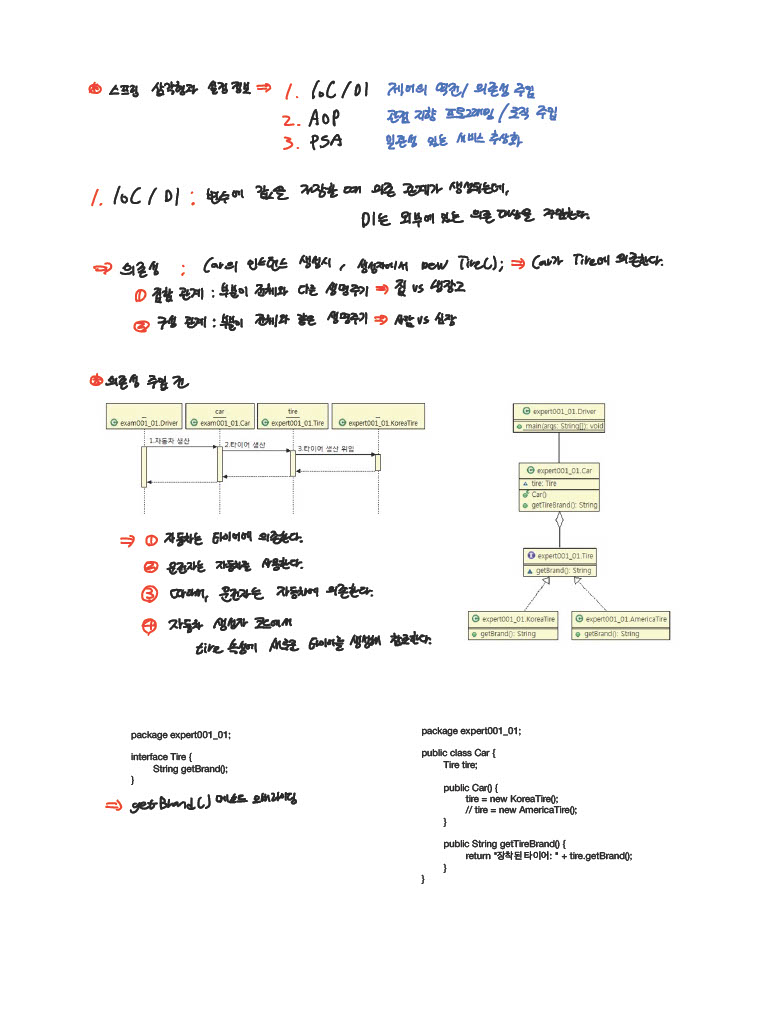 스프링 삼각형과 설정 정보 ⇒ 1. IoC / DI 제어의 역전 / 의존성 주입
2. AOP 관점 지향 프로그래밍 / 로직 주입
3. PSA 일관성 있는 서비스 추상화
1. IoC / DI : 변수에 값을 저장할 때 의존 관계가 생성되는데,
DI는 외부에 있는 의존 대상을 주입한다.
⇒ 의존성 : Car의 인스턴스 생성시, 생성자에서 new Tire(); ⇒ Car가 Tire에 의존한다.
① 집합 관계 : 부분이 전체와 다른 생명주기 ⇒ 집 vs 냉장고
② 구성 관계 : 부분이 전체와 같은 생명주기 ⇒ 사람 vs 심장
의존성 주입 전
exam001_01.Driver
car
exam001_01.Car
tire
expert001_01.Tire
expert001_01.KoreaTire
1.자동차 생산
2.타이어 생산
3.타이어 생산 위임
expert001_01.Driver
main(args: String[]): void
expert001_01.Car
tire: Tire
Car()
getTireBrand(): String
expert001_01.Tire
getBrand(): String
expert001_01.KoreaTire
getBrand(): String
expert001_01.AmericaTire
getBrand(): String
⇒ ① 자동차는 타이어에 의존한다.
② 운전자는 자동차를 사용한다.
③ 따라서, 운전자는 자동차에 의존한다.
④ 자동차 생성자 코드에서
tire 속성에 새로운 타이어를 생성해 참조한다.
package expert001_01;
interface Tire {
String getBrand();
}
⇒ getBrand() 메소드 오버라이딩
package expert001_01;
public class Car {
Tire tire;
public Car() {
tire = new KoreaTire();
// tire = new AmericaTire();
}
public String getTireBrand() {
return "장착된 타이어: " + tire.getBrand();
}
}